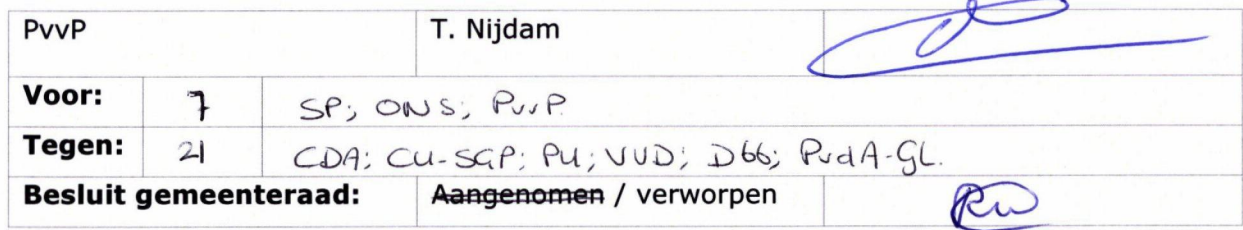 PvvP T. Nijdam
Voor: 7 SP; ONS; PvvP.
Tegen: 21 CDA; CU-SGP; PU; VVD; D66; PvdA-GL.
Besluit gemeenteraad: Aangenomen / verworpen